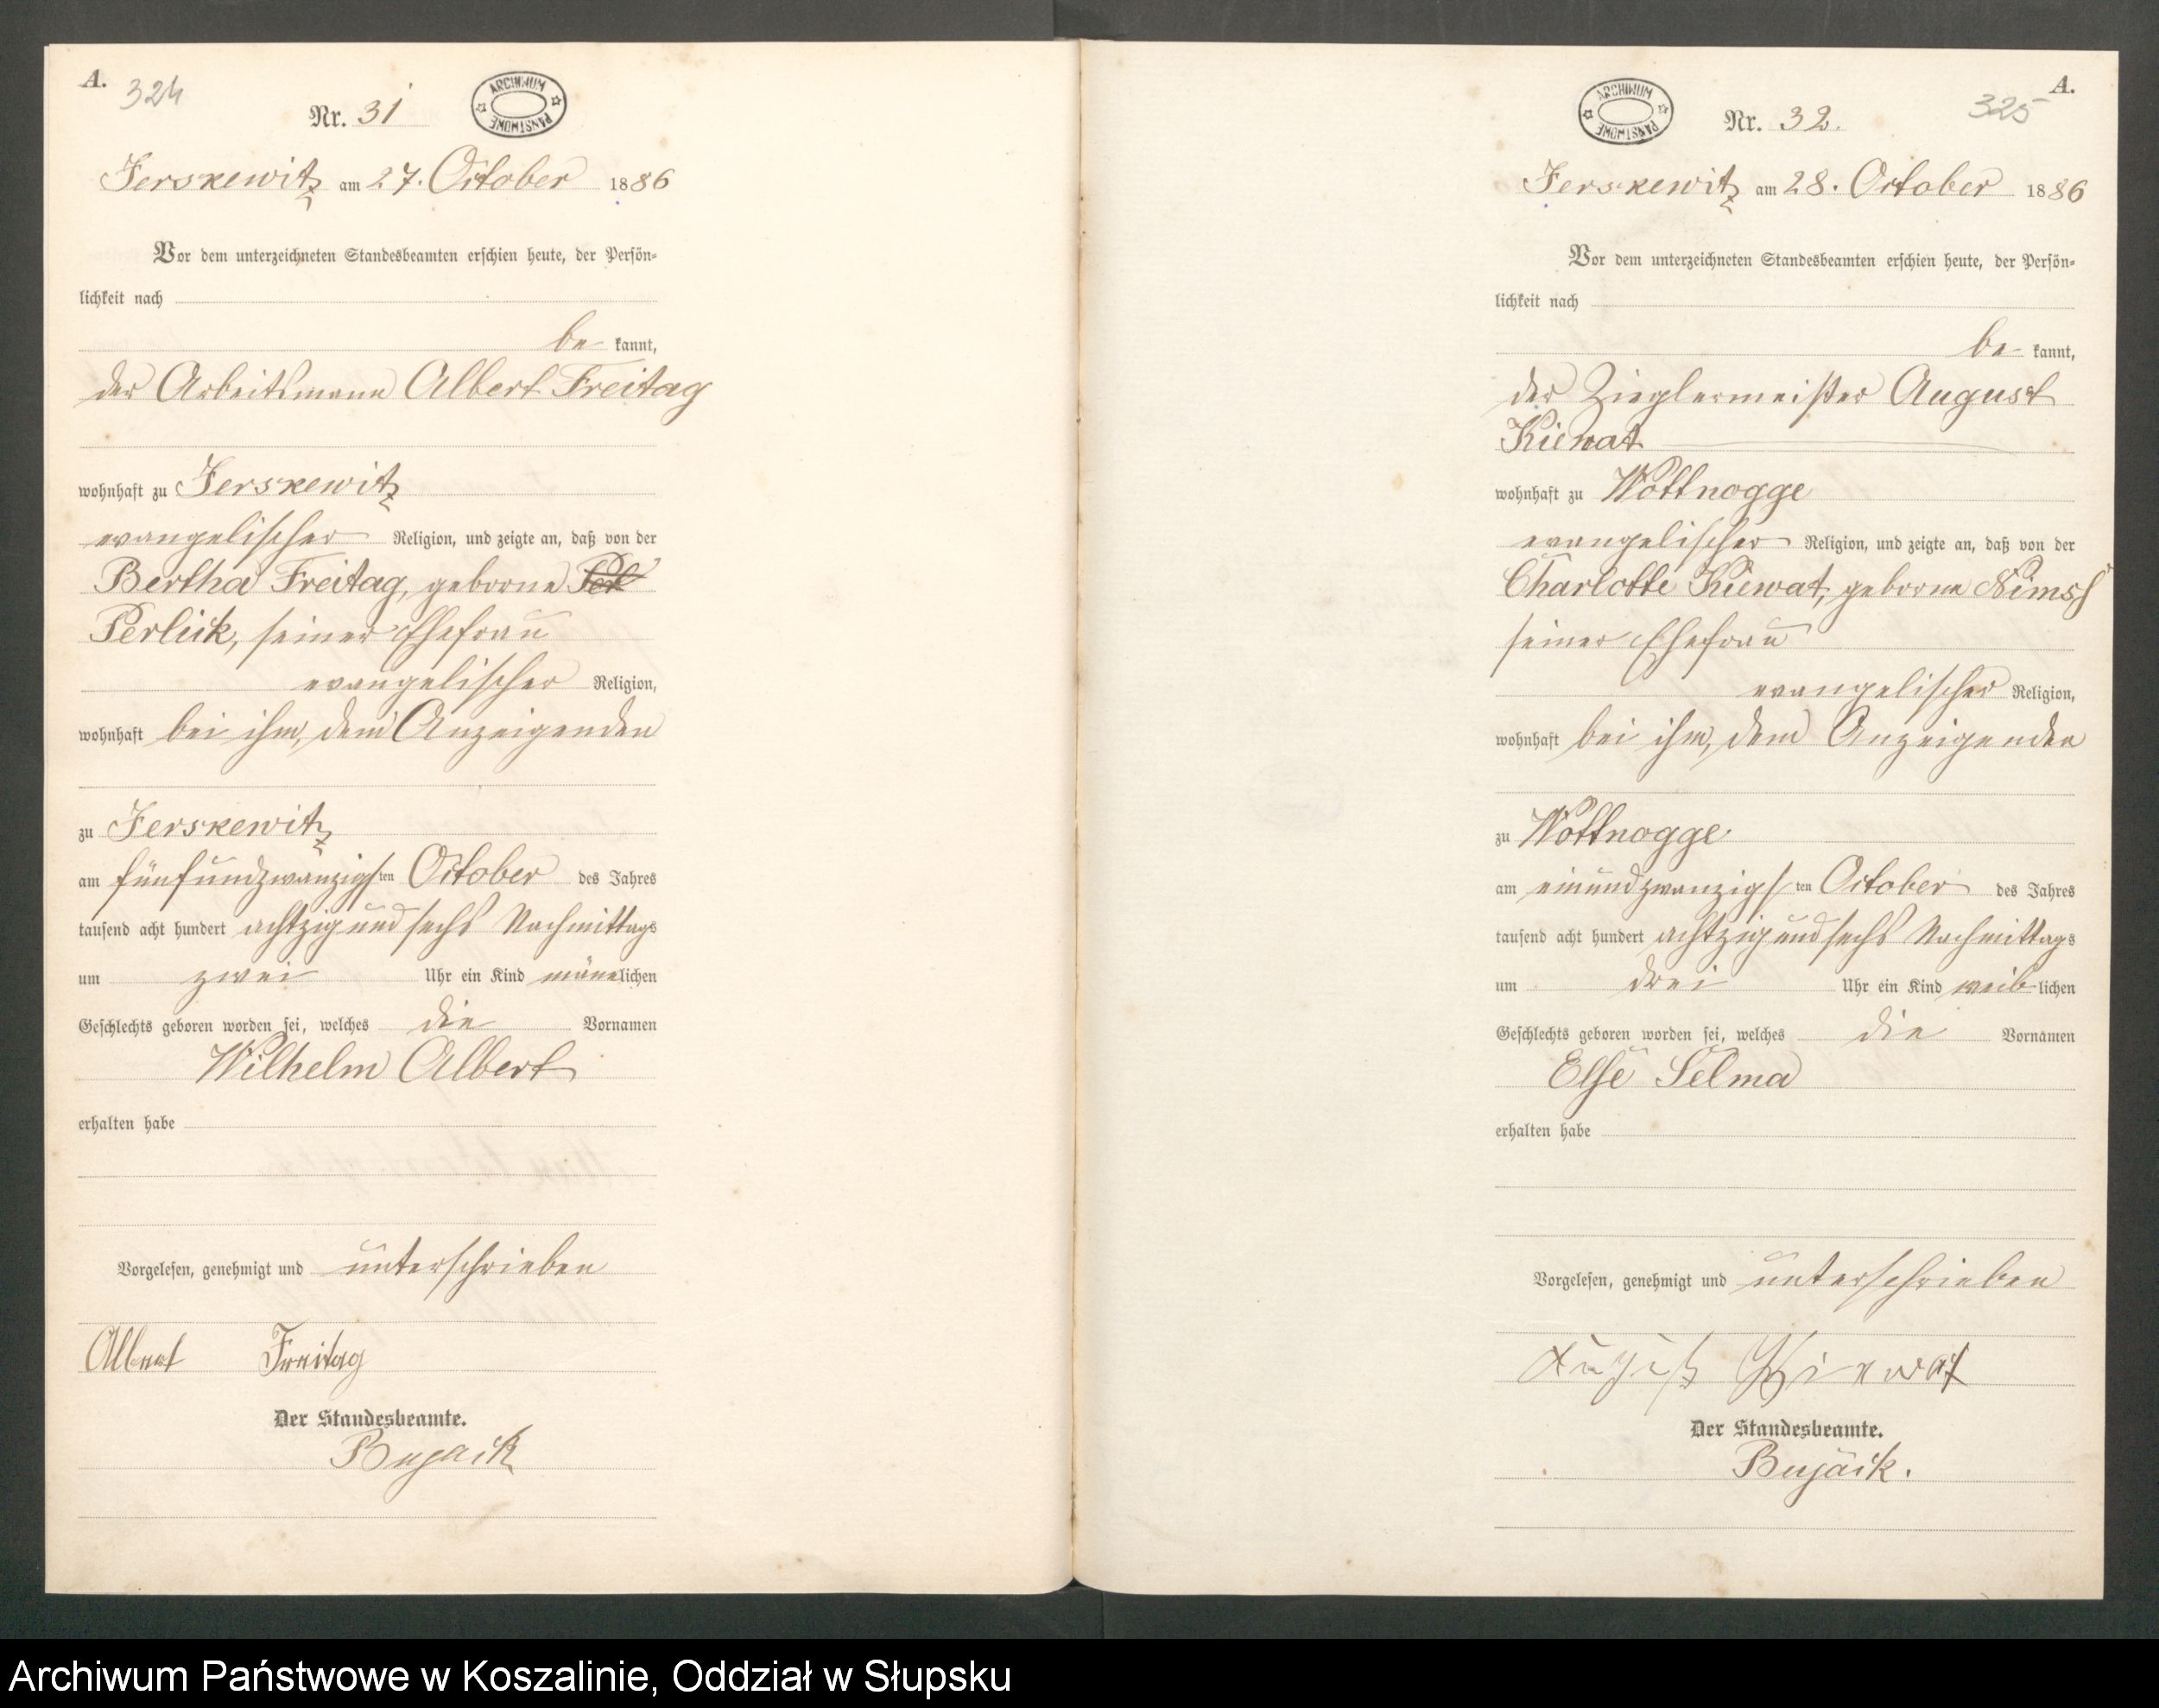 A.
324
Nr. 31
ARCHIWUM PAŃSTWOWE
Jerskewitz am 27. October 1886
Vor dem unterzeichneten Standesbeamten erschien heute, der Persön-
lichkeit nach
be kannt,
der Arbeitsmann Albert Freitag
wohnhaft zu Jerskewitz
evangelischer Religion, und zeigte an, daß von der
Bertha Freitag, geborne Perl
Perlick, seiner Ehefrau
evangelischer Religion,
wohnhaft bei ihm, dem Anzeigenden
zu Jerskewitz
am fünfundzwanzigsten October des Jahres
tausend acht hundert achtzig und sechs Nachmittags
um zwei Uhr ein Kind männlichen
Geschlechts geboren worden sei, welches die Vornamen
Wilhelm Albert
erhalten habe
Vorgelesen, genehmigt und unterschrieben
Albert Freitag
Der Standesbeamte.
Bujack
A.
325
Nr. 32.
ARCHIWUM PAŃSTWOWE
Jerskewitz am 28. October 1886
Vor dem unterzeichneten Standesbeamten erschien heute, der Persön-
lichkeit nach
be kannt,
der Zieglermeister August
Kiewat
wohnhaft zu Wottnogge
evangelischer Religion, und zeigte an, daß von der
Charlotte Kiewat, geborne Nimsch
seiner Ehefrau
evangelischer Religion,
wohnhaft bei ihm, dem Anzeigenden
zu Wottnogge
am einundzwanzigsten October des Jahres
tausend acht hundert achtzig und sechs Nachmittags
um drei Uhr ein Kind weiblichen
Geschlechts geboren worden sei, welches die Vornamen
Else Selma
erhalten habe
Vorgelesen, genehmigt und unterschrieben
August Kiewat
Der Standesbeamte.
Bujack.
Archiwum Państwowe w Koszalinie, Oddział w Słupsku